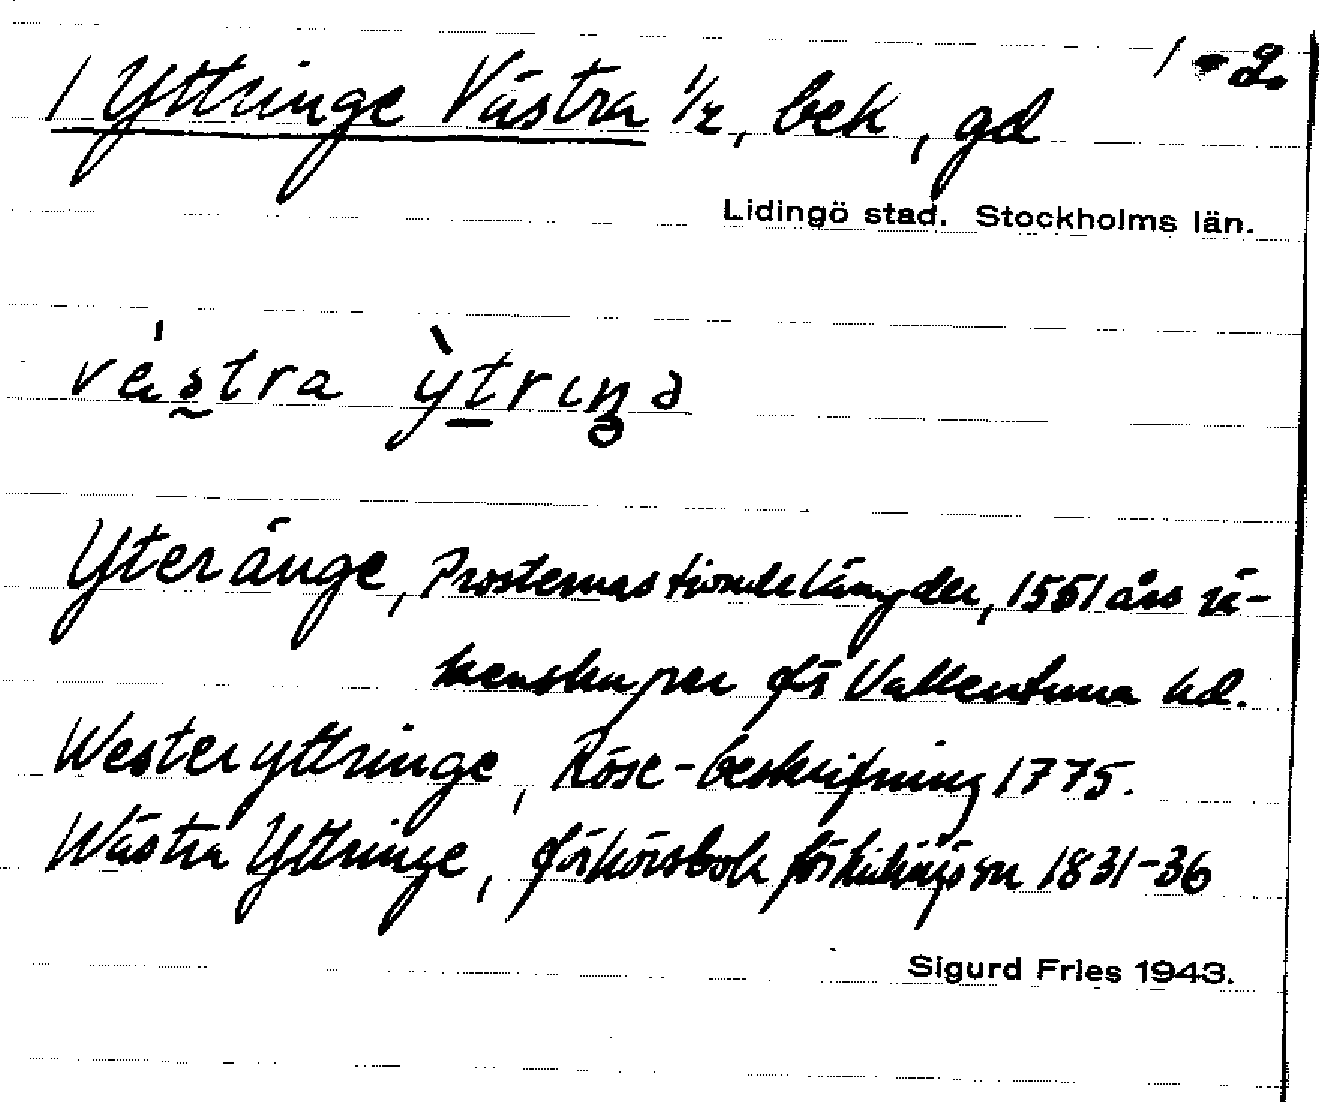 1-2
1 Yttringe Västra 1/2, bek, gd
Lidingö stad. Stockholms län.
västra ỳtrıŋə
Yteränge, Prosternas tiondelängder, 1551 års rä-
kenskaper för Vallentuna hd.
Westeryttringe, Röse-beskrifning 1775.
Wästra Yttringe, förhörsbok för Lidingö sn 1831-36
Sigurd Fries 1943.